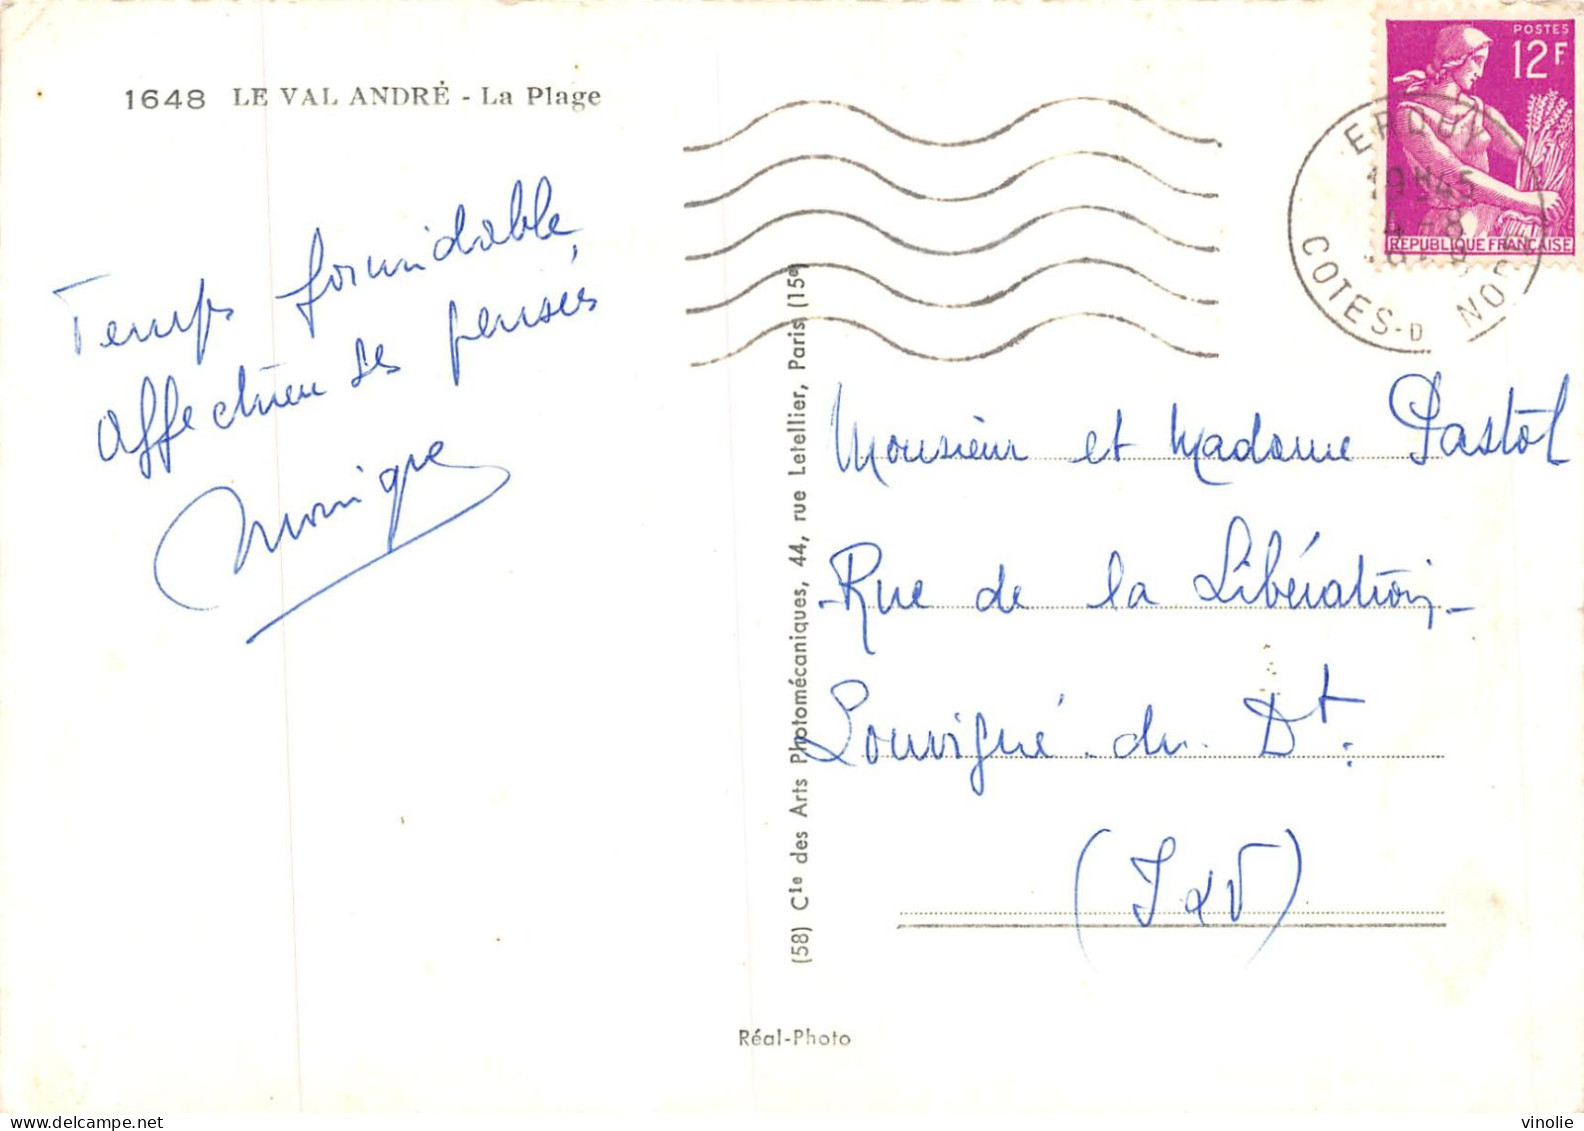 1648 LE VAL ANDRÉ - La Plage
Temps formidable,
affectueuses pensées
Monique
POSTES
12F
REPUBLIQUE FRANÇAISE
ERQUY
19H45
4 - 8
COTES-D NORD
(58) Cie des Arts Photomécaniques, 44, rue Letellier, Paris (15e)
Monsieur et Madame Pastol
Rue de la Libération
Louvigné-du-Dt.
(I&V)
Réal-Photo
vinolie